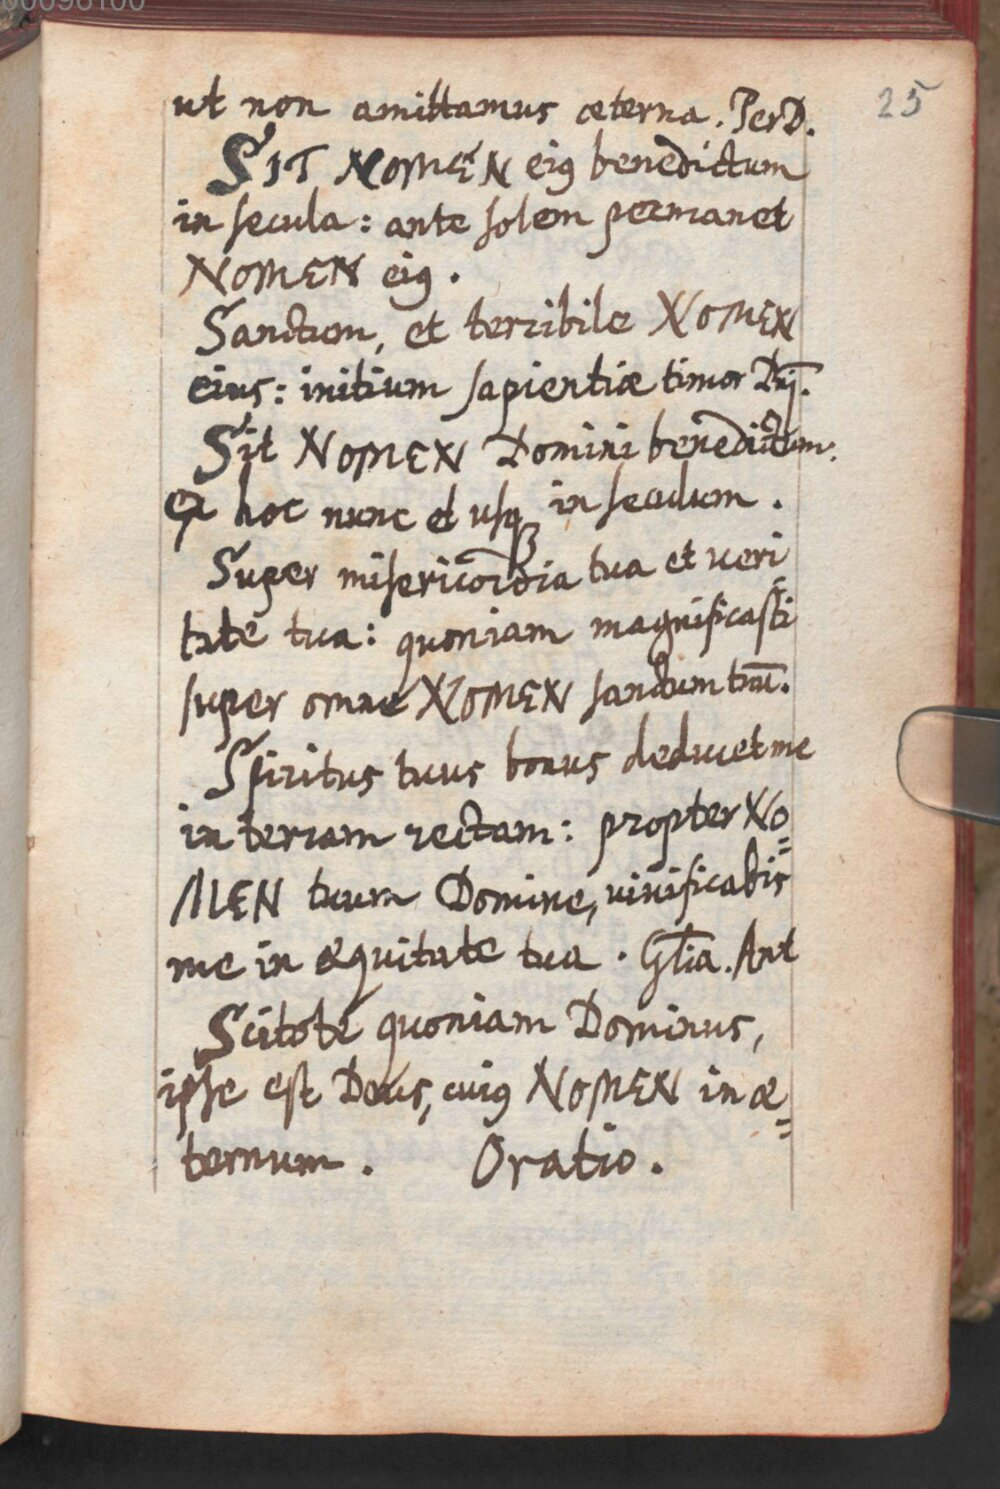 00096100
25
ut non amittamus æterna. Per D.
SIT NOMEN eiꝰ benedictum
in secula: ante solem permanet
NOMEN eiꝰ.
Sanctum, et terribile NOMEN
eius: initium sapientiæ timor Dn̄j.
Sit NOMEN Domini benedictum.
Ex hoc nunc et usqꝫ in seculum.
Super misericordia tua et veri
tate tua: quoniam magnificasti
super omne NOMEN sanctum tuū.
Spiritus tuus bonus deducet me
in terram rectam: propter NO=
MEN tuum Domine, vivificabis
me in æquitate tua. Gl̄ia. Ant
Scitote quoniam Dominus,
ipse est Deus, cuiꝰ NOMEN in æ=
ternum. Oratio.